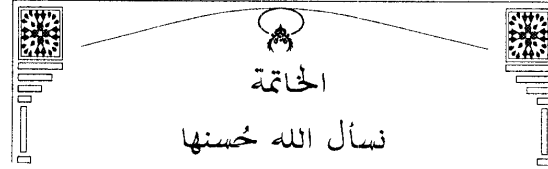 الخاتمة
نسأل الله حُسنها